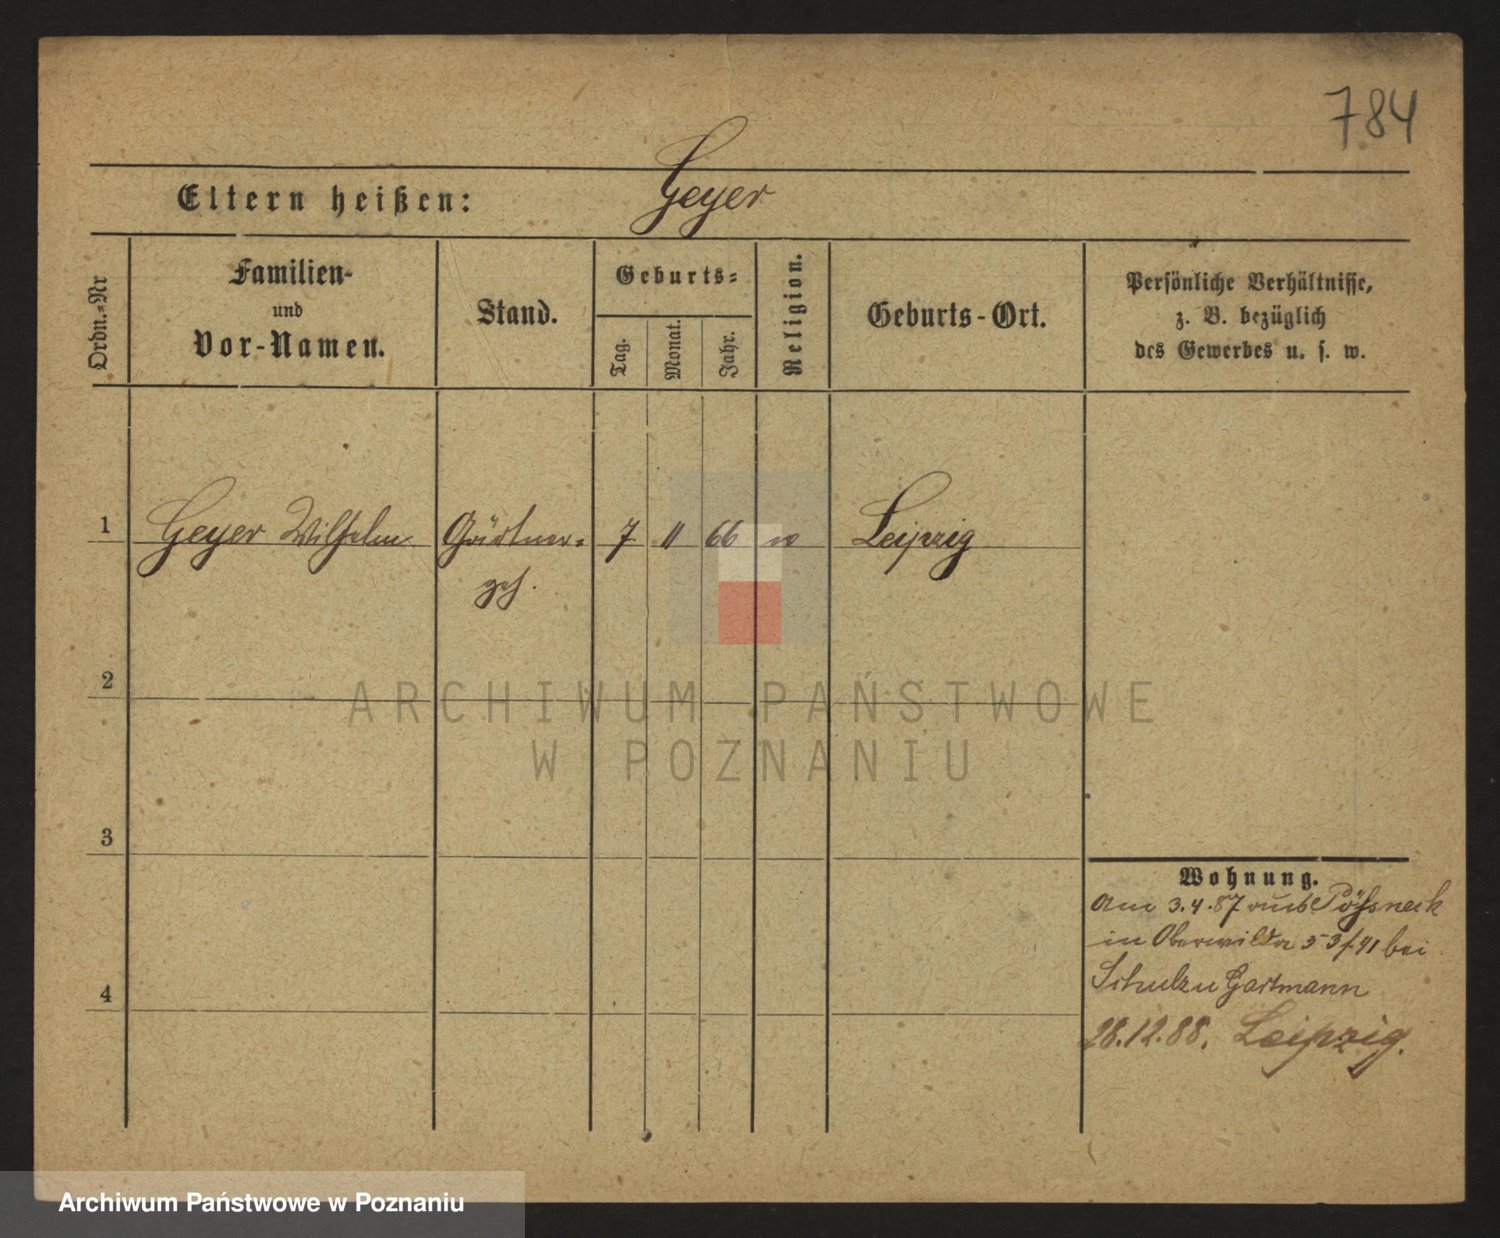 784
Eltern heißen: Geyer
Ordn.-Nr
Familien-
und
Vor-Namen.
Stand.
Geburts-
Tag.
Monat.
Jahr.
Religion.
Geburts-Ort.
Persönliche Verhältnisse,
z. B. bezüglich
des Gewerbes u. s. w.
1 Geyer Wilhelm Gärtner- 7 11 66 Leipzig
2
ARCHIWUM PAŃSTWOWE
W POZNANIU
3
Wohnung.
Am 3.4.87 aus Pößneck
in Oberwilda bei
Schulze Hartmann
4
28.12.88. Leipzig.
Archiwum Państwowe w Poznaniu